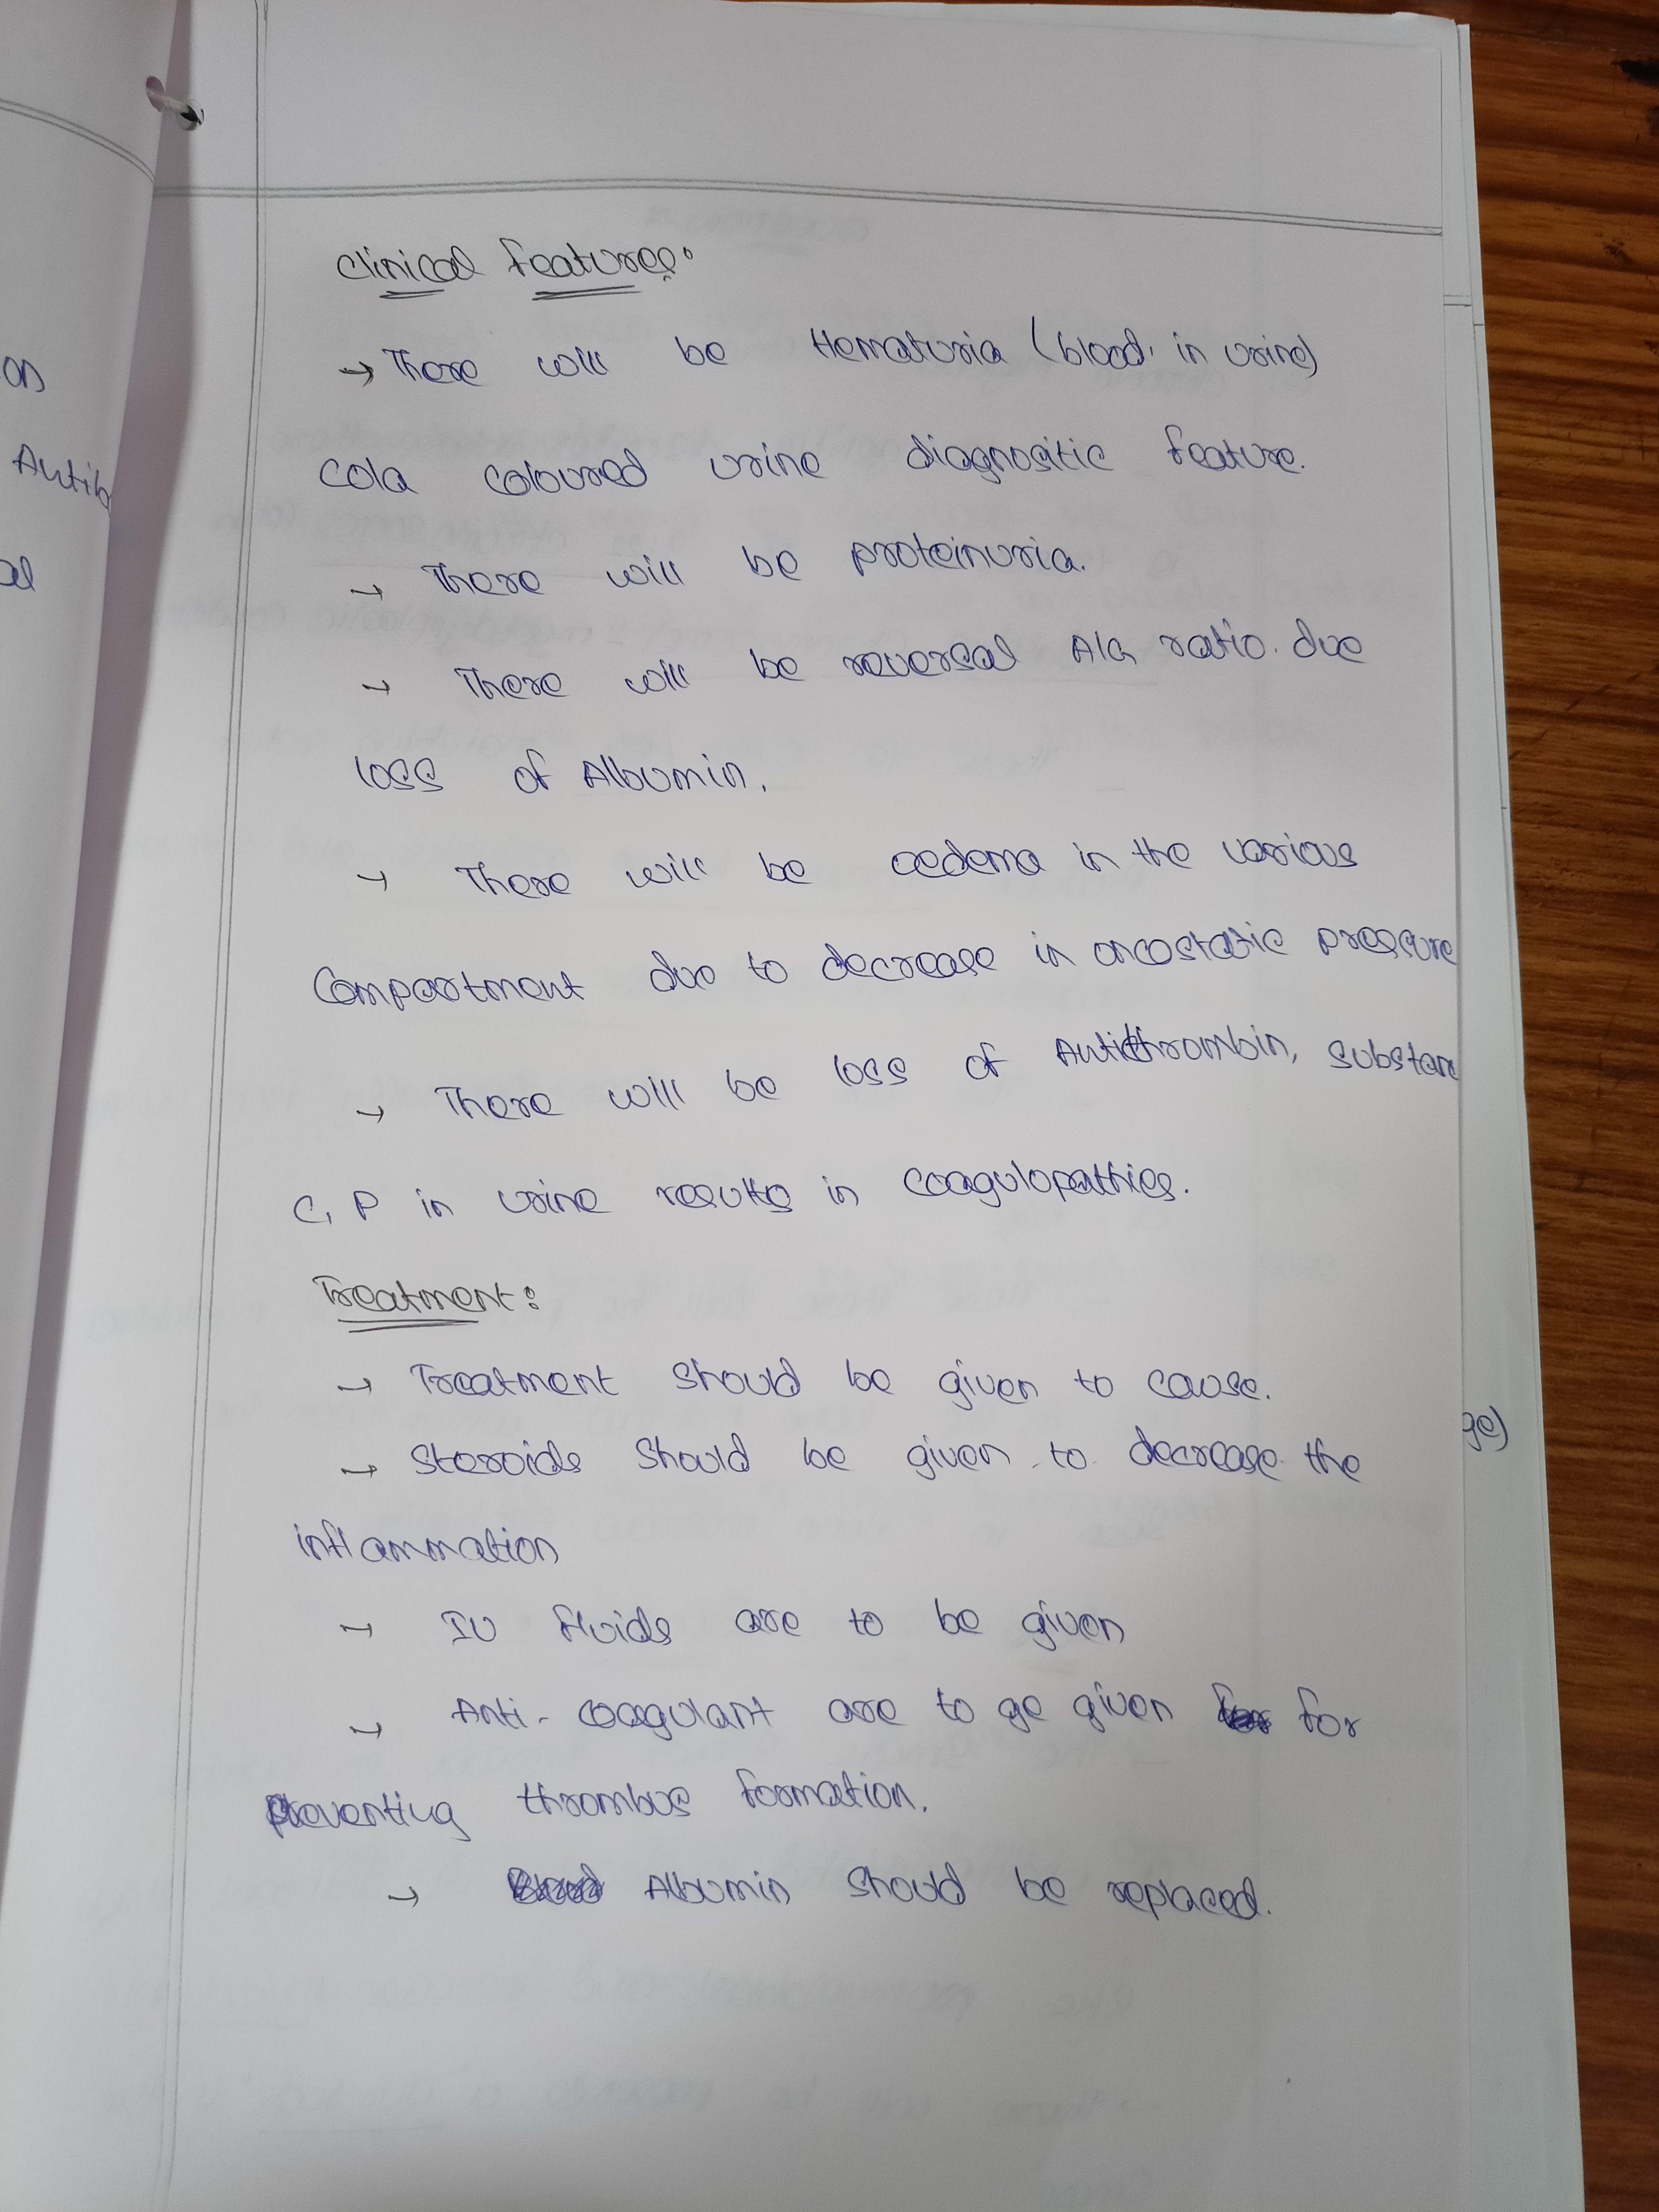 on
Antib
al
Clinical Features:
→ There will be Hematuria (blood in urine)
cola coloured urine diagnositic feature.
→ There will be proteinuria.
→ There will be reversal A/G ratio. due
loss of Albumin.
→ There will be oedema in the various
Compartment due to decrease in oncostatic pressure
→ There will be loss of Antithrombin, substan
C, P in urine results in coagulopathies.
Treatment:
→ Treatment should be given to cause.
→ Steroids should be given to decrease the
inflammation
→ IV fluids are to be given
→ Anti-coagulant are to ge given for
preventing thrombus formation.
→ Albumin should be replaced.
ge)